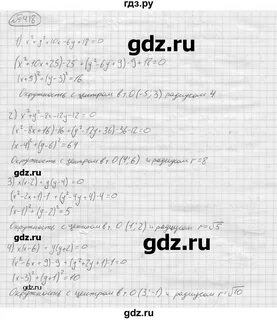 №418
1) x²+y²+10x-6y+18=0
(x²+10x+25)-25+(y²-6y+9)-9+18=0
(x+5)²+(y-3)²=16
Окружность с центром в т. O(-5; 3) радиусом 4
2) x²+y²-8x-12y-12=0
(x²-8x+16)-16+(y²-12y+36)-36-12=0
(x-4)²+(y-6)²=64
Окружность с центром в т. O(4; 6) и радиусом r=8
3) x(x-2)+y(y-4)=0
(x²-2x+1)-1+(y²-4y+4)-4=0
(x-1)²+(y-2)²=5
Окружность с центром в т. O(1; 2) и радиусом r=√5
4) x(x-6)+y(y+2)=0
(x²-6x+9)-9+(y²+2y+1)-1=0
(x-3)²+(y+1)²=10
Окружность с центром в т. O(3; -1) и радиусом r=√10
gdz.ru
gdz.ru
gdz.ru
gdz.ru
gdz.ru
gdz.ru
gdz.ru
gdz.ru